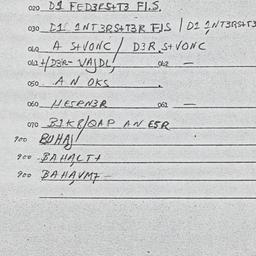 020 D1 FED3RS+T3 FI.S.
030 D1 1NT3RS+T3R FJS / D1 1NT3RS+T3
040 A S+VONC / D3R S+VONC
041 +/D3R- VAJDL, 042 —
050 A N OKS
060 HESPN3R 061 —
070 B1KR/QAP AN ESR
900 BUHAJ
900 BAHALT+
900 BAHAVMT